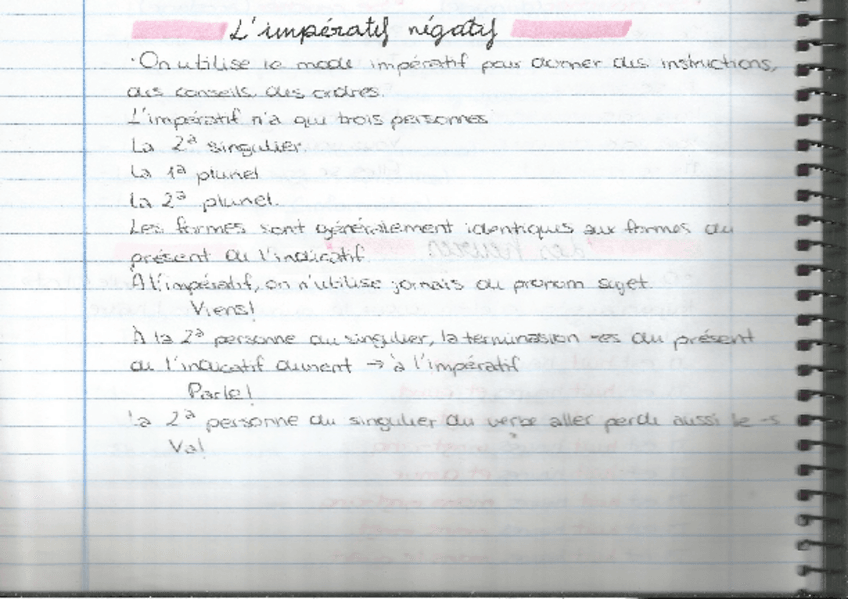 L'impératif négatif
·On utilise le mode impératif pour donner des instructions,
des conseils, des ordres.
L'impératif n'a que trois personnes
La 2ª singulier
La 1ª pluriel
La 2ª pluriel.
Les formes sont généralement identiques aux formes du
présent de l'indicatif.
À l'impératif, on n'utilise jamais du pronom sujet.
Viens!
À la 2ª personne du singulier, la terminaison -es du présent
de l'indicatif devient → à l'impératif
Parle!
La 2ª personne du singulier du verbe aller perde aussi le -s
Va!